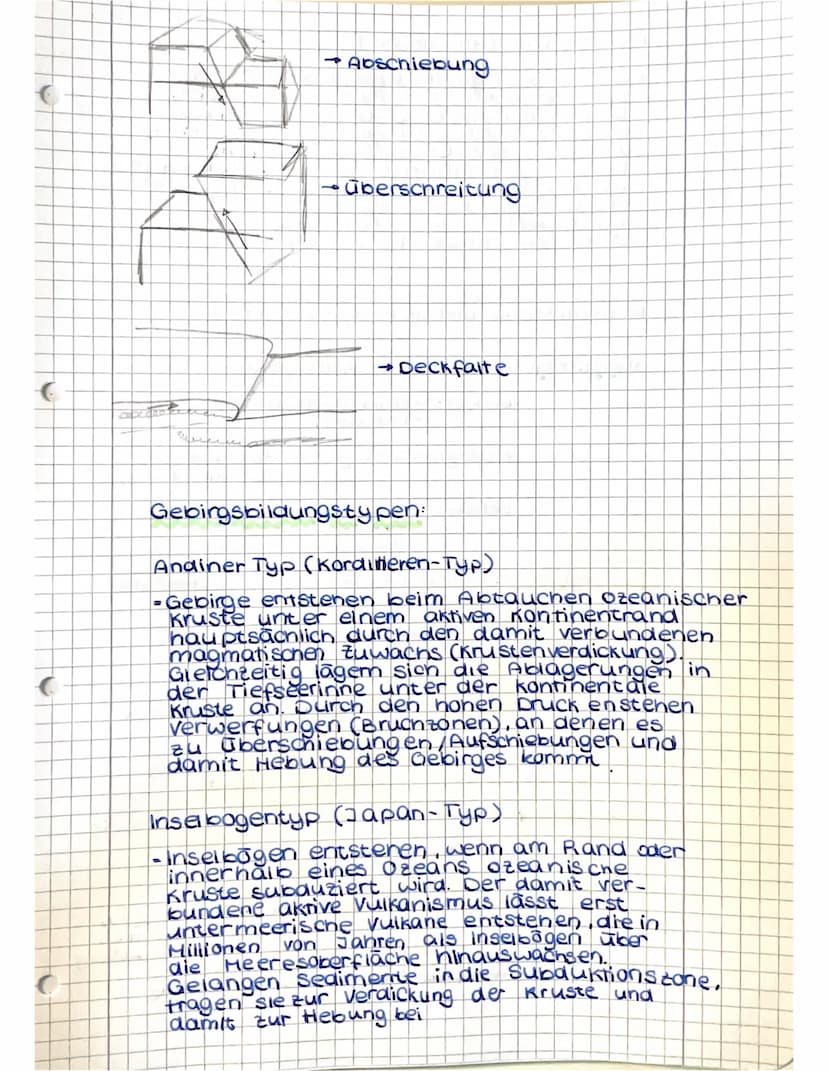 → Abschiebung
→ Überschreitung
→ Deckfalte
Gebirgsbildungstypen:
Andiner Typ (Kordilleren-Typ)
- Gebirge entstehen beim Abtauchen ozeanischer
Kruste unter einem aktiven Kontinentrand
hauptsächlich durch den damit verbundenen
magmatischen Zuwachs (Krustenverdickung).
Gleichzeitig lagern sich die Ablagerungen in
der Tiefseerinne unter der kontinentale
Kruste an. Durch den hohen Druck enstehen
Verwerfungen (Bruchzonen), an denen es
zu Überschiebungen/Aufschiebungen und
damit Hebung des Gebirges kommt.
Inselbogentyp (Japan-Typ)
- Inselbögen entstehen, wenn am Rand oder
innerhalb eines Ozeans ozeanische
Kruste subduziert wird. Der damit ver-
bundene aktive Vulkanismus lässt erst
untermeerische Vulkane entstehen, die in
Millionen von Jahren als Inselbögen über
die Meeresoberfläche hinauswachsen.
Gelangen Sedimente in die Subduktionszone,
tragen sie zur Verdickung der Kruste und
damit zur Hebung bei